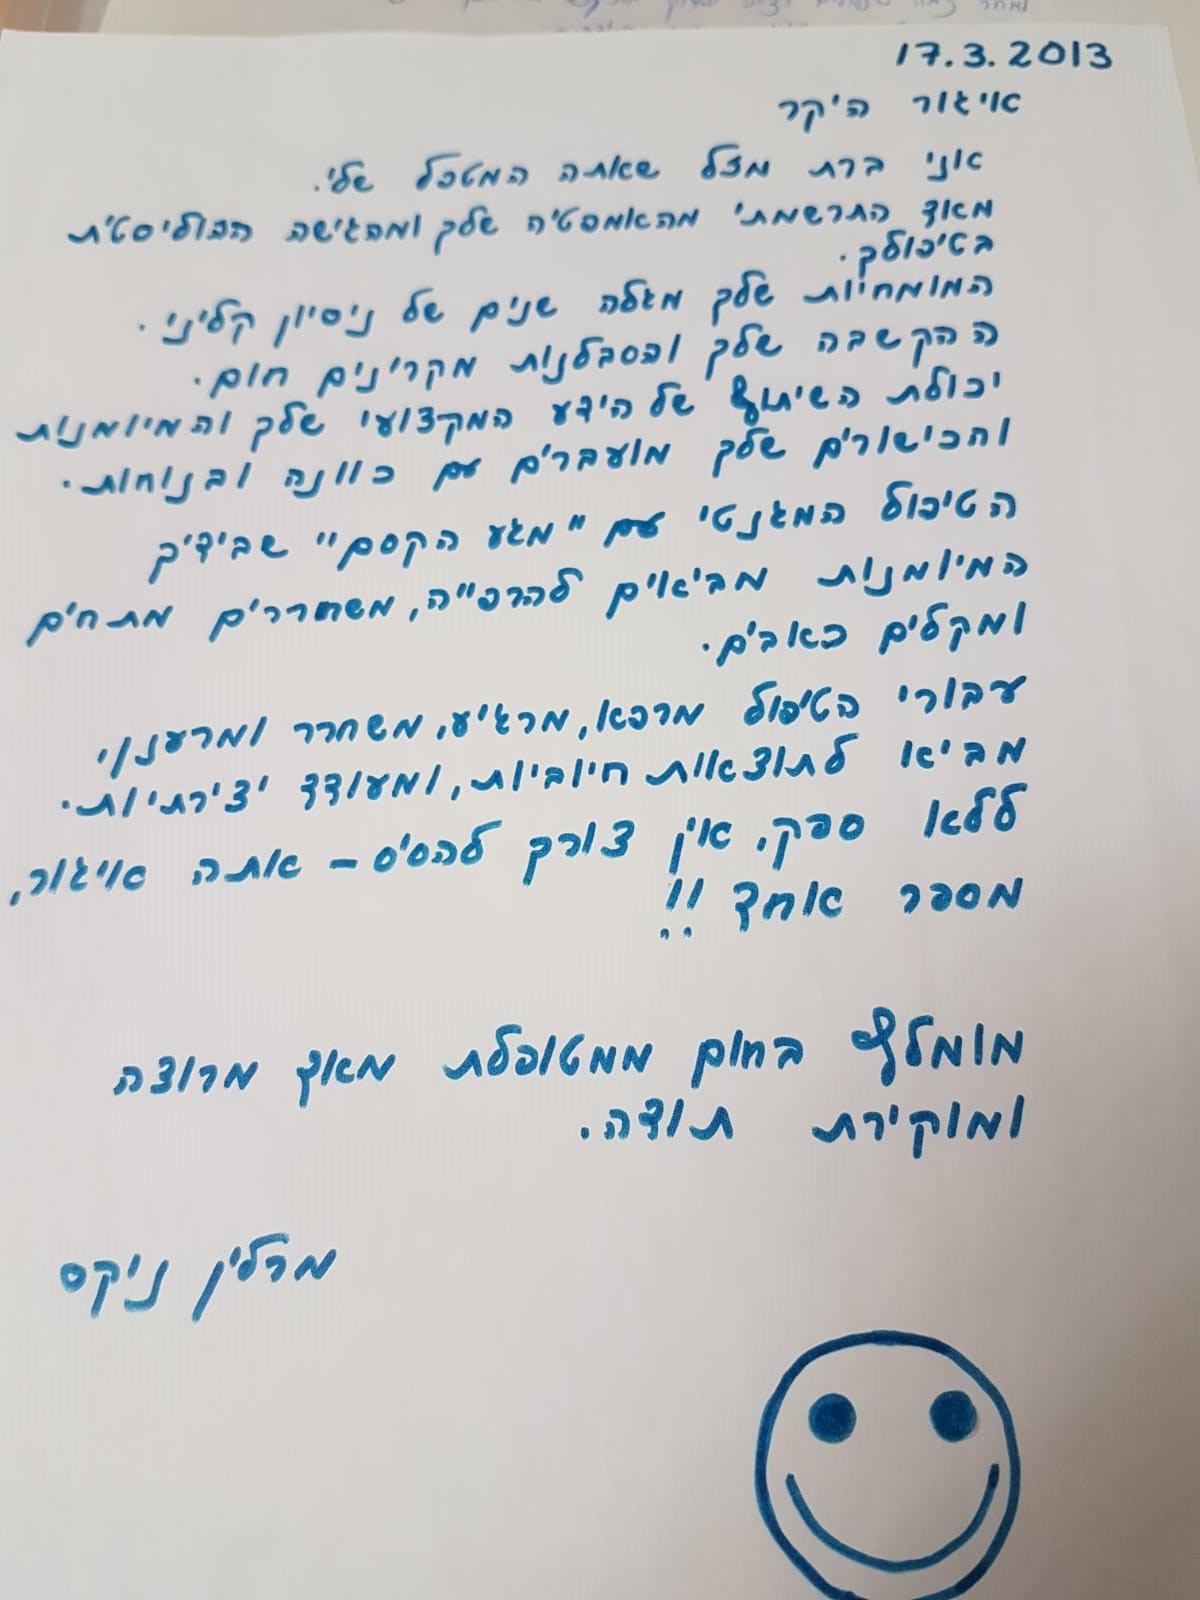 17.3.2013
איגור היקר
אני ברת מזל שאתה המטפל שלי.
מאוד התרשמתי מהאמפטיה שלך ומהגישה ההוליסטית
בטיפולך.
המומחיות שלך מגלה שנים של ניסיון קליני.
ההקשבה שלך והסבלנות מקרינים חום.
יכולת השיתוף של הידע המקצועי שלך והמיומנות
והכישורים שלך מועברים עם כוונה ובנוחות.
הטיפול המגנטי עם "מגע הקסם" שבידיך
המיומנות מביאים להרפייה, משחררים מתחים
ומקלים כאבים.
עבורי הטיפול מרפא, מרגיע, משחרר ומרענן,
מביא לתוצאות חיוביות, ומעודד יצירתיות.
ללא ספק, אין צורך להסס - אתה איגור,
מספר אחד!!
מומלץ בחום ממטופלת מאוד מרוצה
ומוקירת תודה.
מרלין ניקס